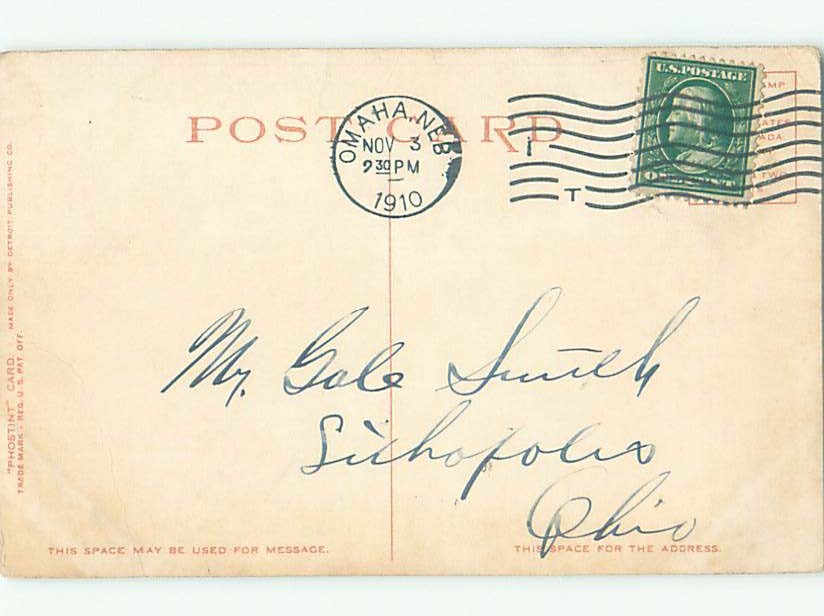 U.S. POSTAGE
POST CARD
OMAHA, NEB.
NOV 3
230 PM
1910
T
Mr. Gale Smith
Lithopolis
Ohio
THIS SPACE MAY BE USED FOR MESSAGE.
THIS SPACE FOR THE ADDRESS.
"PHOSTINT" CARD MADE ONLY BY DETROIT PUBLISHING CO.
TRADE MARK - REG. U.S. PAT. OFF.